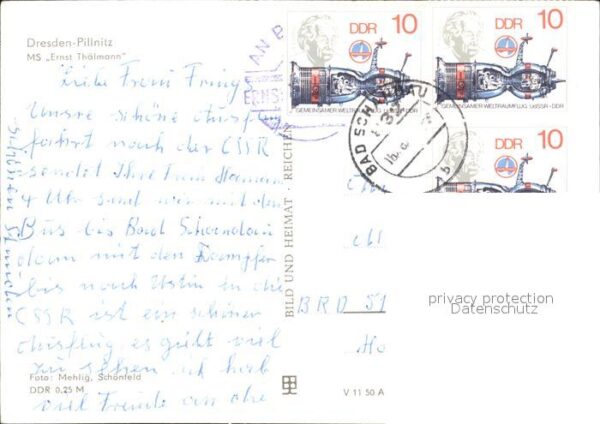 Dresden-Pillnitz
MS „Ernst Thälmann"
Liebe Frau
Unsre schöne Ausflug
fahrt nach der CSSR
sendet Ihre Frau
4 Uhr sind wir mit dem
Bus bis Bad Schandau
dann mit den Dampfer
bis nach Ustin in die
CSSR ist ein schöner
Ausflug, es gibt viel
zu sehen ich hab
viel Freude an die
schönen
Foto: Mehlig, Schönfeld
DDR 0,25 M
BILD UND HEIMAT · REICHEN
V 11 50 A
AN B
ERNS
DDR 10
GEMEINSAMER WELTRAUMFLUG UdSSR-DDR
DDR 10
GEMEINSAMER WELTRAUMFLUG UdSSR-DDR
DDR 10
BAD SCHANDAU
BRD 51
privacy protection
Datenschutz